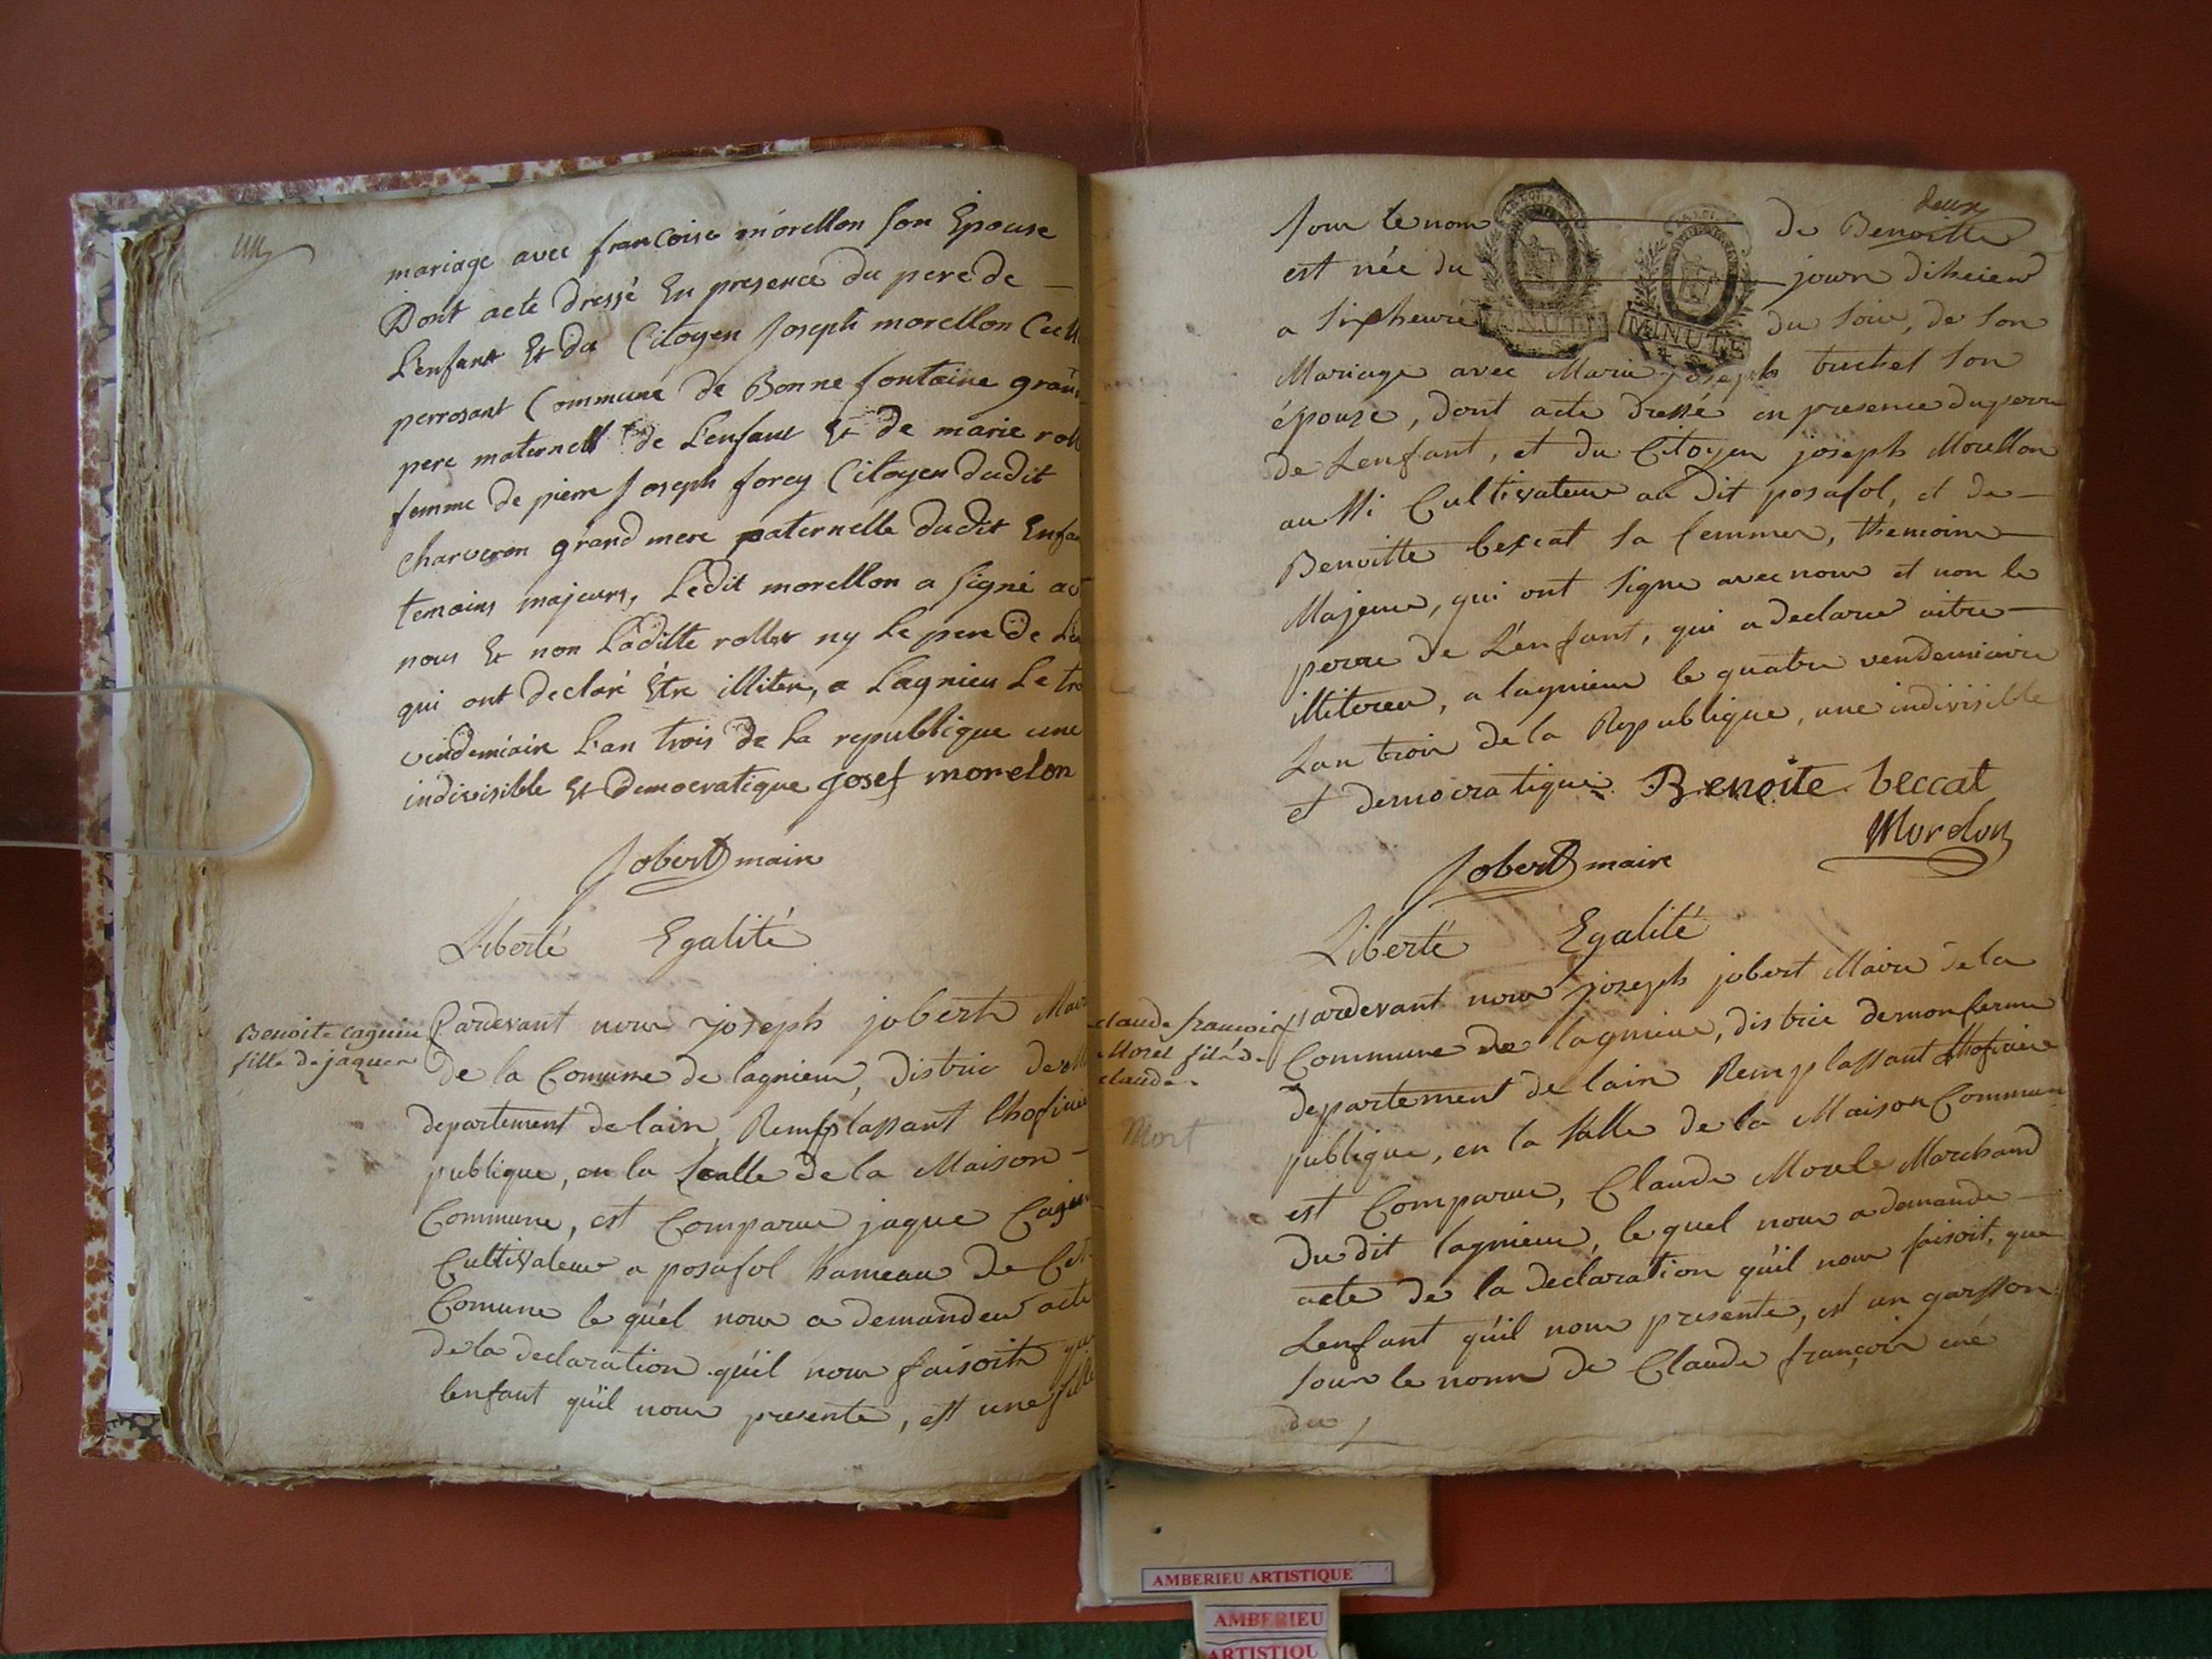 mariage avec francoise morellon son Epouse
Dont acte dressé En presence du pere de
L'enfant Et du Citoyen Joseph morellon
perrosant Commune de Bonne fontaine
pere maternell de L'enfant Et de marie
femme de pierre Joseph forey Citoyen dudit
charveron grand mere paternelle dudit
temoins majeurs, Ledit morellon a signé
nous Et non Laditte rollet ny Le pere de
qui ont declaré Etre illiteré, a Lagnieu Le
vendemiaire L'an trois de La republique une
indivisible Et democratique Josef morelon
Jobert maire
Liberté Egalité
Benoite cagnin
fille de jaques
Pardevant nous joseph joberth
de la Comune de lagnieu, distric
departement de lain, Remplassant
publique, en la salle de la Maison
Commune, est Comparue jaque
Cultivateur a posafol hameau de
Comune le quel nous a demandeu acte
de la declaration qu'il nous faisoith
lenfant qu'il nous presente, est une fille
deux
sous le nom de Benoitte
est née du jour dihier
a six heure du soir, de son
MINUTE MINUTE
Mariage avec Marie joseph truchet son
épouse, dont acte dressé en presence du perre
de Lenfant, et du Citoyen joseph Morellon
aussi Cultivateur au dit posafol, et de
Benoitte beccat sa femme, themoins
Majeurs, qui ont signe avec nous et non le
perre de L'enfant, qui a declaré aitre
illiteréu, a lagnieu le quatre vendemiaire
Lan trois de la Republique, une indivisible
et democratique Benoite beccat
Morelon
Jobert maire
Liberté Egalité
claude francois
Morel fils de
claude
Mort
Pardevant nous joseph jobert Maire de la
Commune de lagnieu, distric de monferme
departement de lain Remplassant
publique, en la salle de la Maison Commune
est Comparue, Claude Morel Marchand
Du dit lagnieu, le quel nous a demande
acte de la declaration qu'il nous faisoit, que
Lenfant qu'il nous presente, est un garsson
sous le nom de Claude françois né
du
AMBERIEU ARTISTIQUE
AMBERIEU
ARTISTIQU